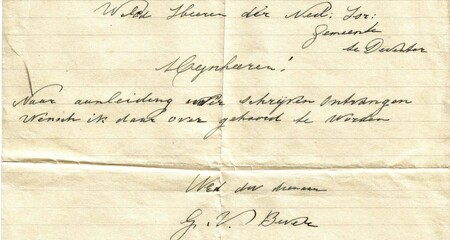 Heeren der Ned: Isr:
Gemeente
te Deventer
Mijnheeren!
Naar aanleiding schrijven ontvangen
Wensch ik daar over gehoord te Worden
G. V.